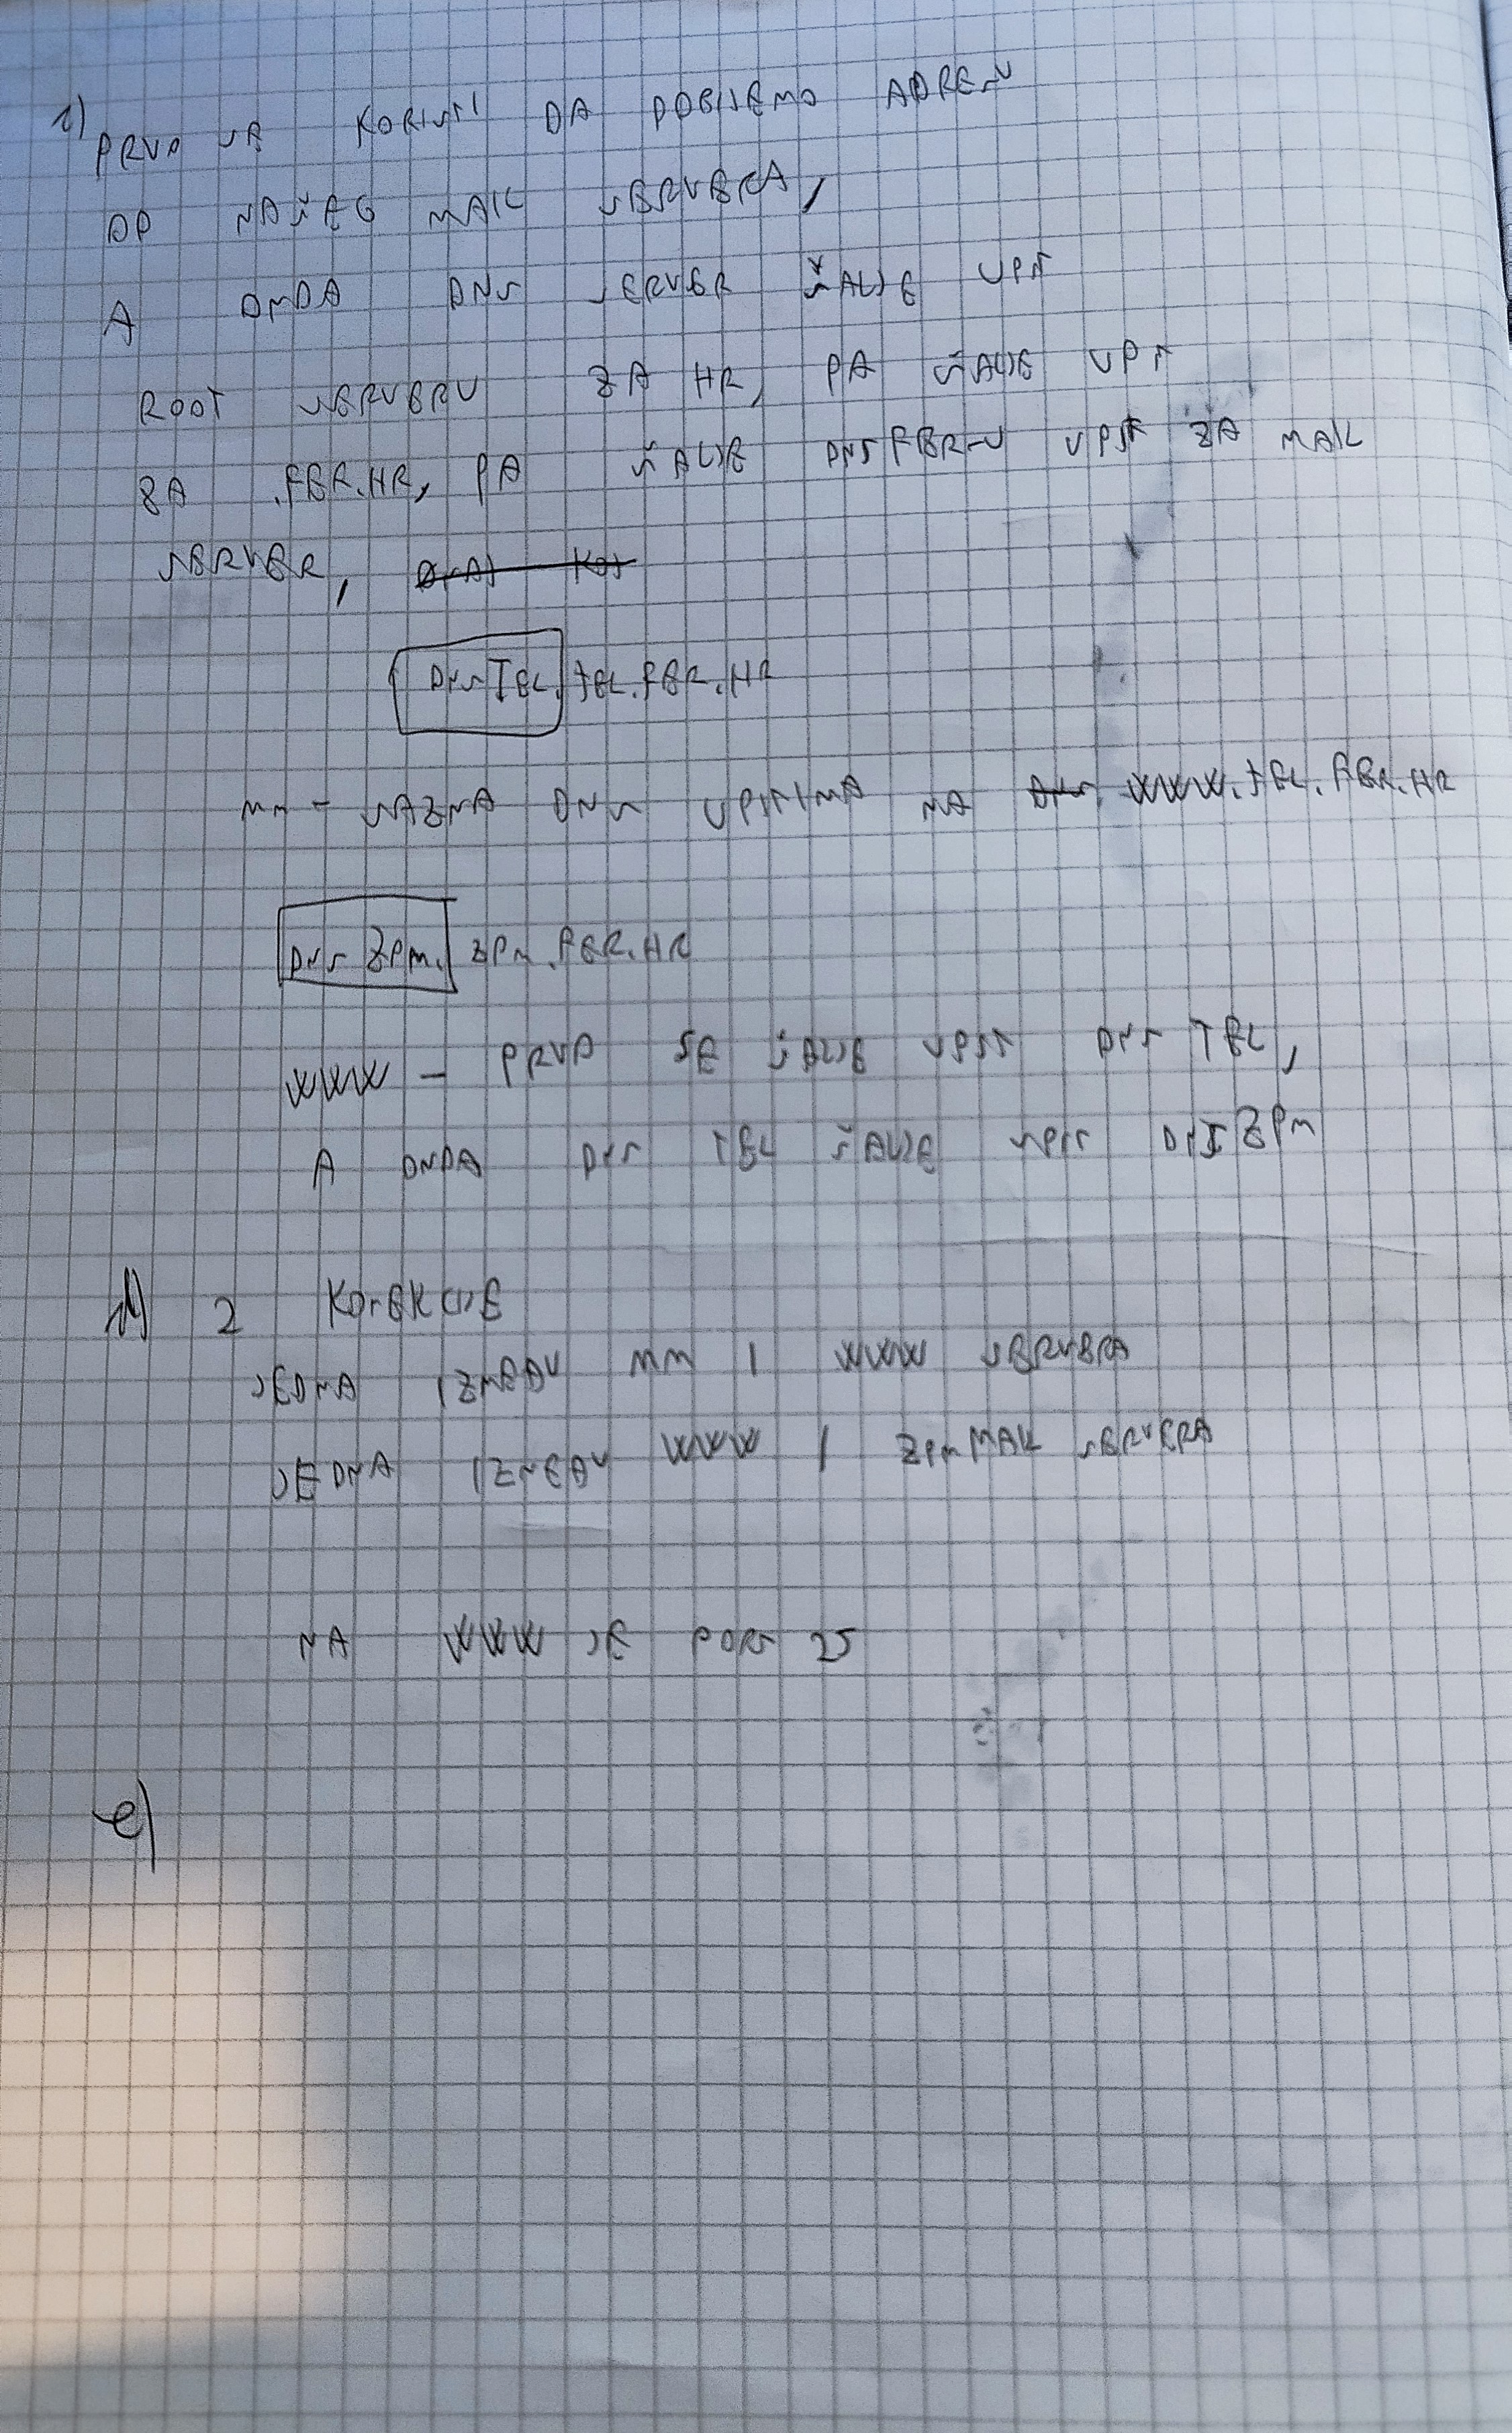 1) PRVO SE KORISTI DA DOBIJEMO ADRESU
OD NAŠEG MAIL SERVERA,
A ONDA DNS SERVER ŠALJE UPIT
ROOT SERVERU ZA HR, PA ŠALJE UPIT
ZA .FER.HR, PA ŠALJE DNSFER-U UPIT ZA MAIL
SERVER,
DNS TEL. TEL.FER.HR
mm - SAZNA DNS UPITIMA NA WWW.TEL.FER.HR
DNS ZPM. ZPM.FER.HR
WWW - PRVO SE ŠALJE UPIT DNS TEL,
A ONDA DNS TEL ŠALJE UPIT DNS ZPM
d) 2 KONEKCIJE
JEDNA IZMEĐU mm I WWW SERVERA
JEDNA IZMEĐU WWW I ZPM MAIL SERVERA
NA WWW JE PORT 25
e)